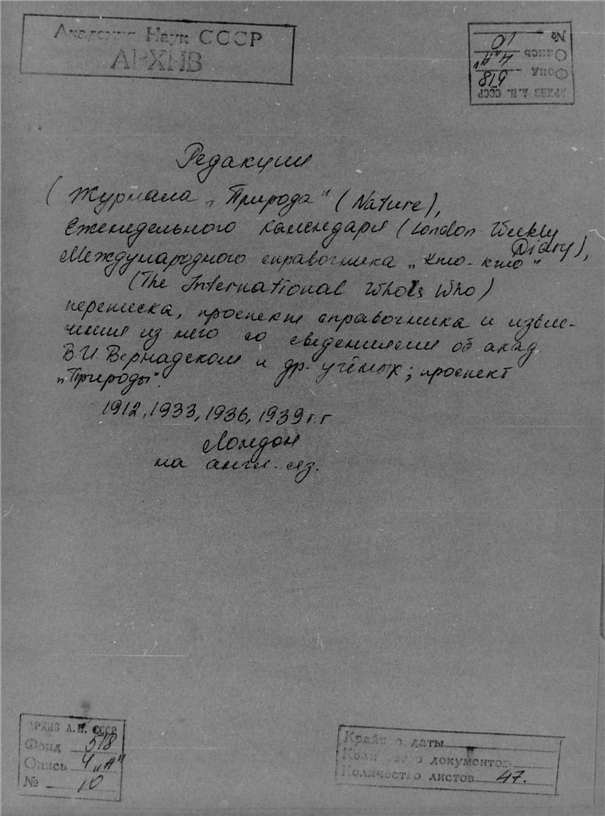 Академия Наук СССР
АРХИВ
АРХИВ А.Н. СССР
Фонд 518
Опись 4 "а"
№ 10
Редакции
(Журнала „Природа" (Nature),
Еженедельного календаря (London Weekly
Diary),
Международного справочника „Кто-кто"
(The International Who's Who)
переписка, проспект справочника и извле-
чения из него со сведениями об акад.
В.И Вернадском и др. учёных; проспект
„Природы".
1912, 1933, 1936, 1939 г.г
Лондон
на англ. яз.
АРХИВ А.Н. СССР
Фонд 518
Опись 4 "а"
№ 10
Крайние даты
Количество документов
Количество листов 47.